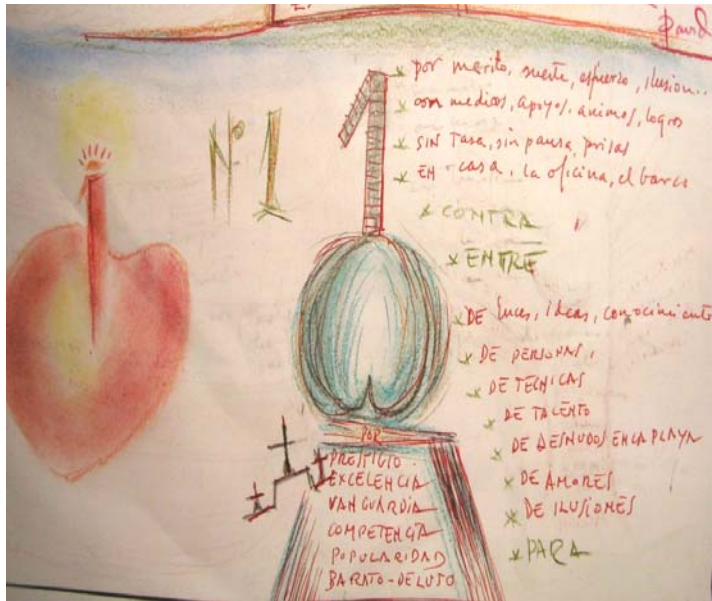 David
* por merito, suerte, esfuerzo, ilusion..
* con medios, apoyos, animos, logros
* SIN TASA, sin pausa, prisas
* EN casa, la oficina, el barco
Nº1
1
* CONTRA
* ENTRE
* DE luces, ideas, conocimiento
* DE PERSONAS,
* DE TECNICAS
* DE TALENTO
* DE DESNUDOS EN LA PLAYA
* DE AMORES
* DE ILUSIONES
* PARA
POR
PRESTIGIO
EXCELENCIA
VANGUARDIA
COMPETENCIA
POPULARIDAD
BARATO-DE LUJO